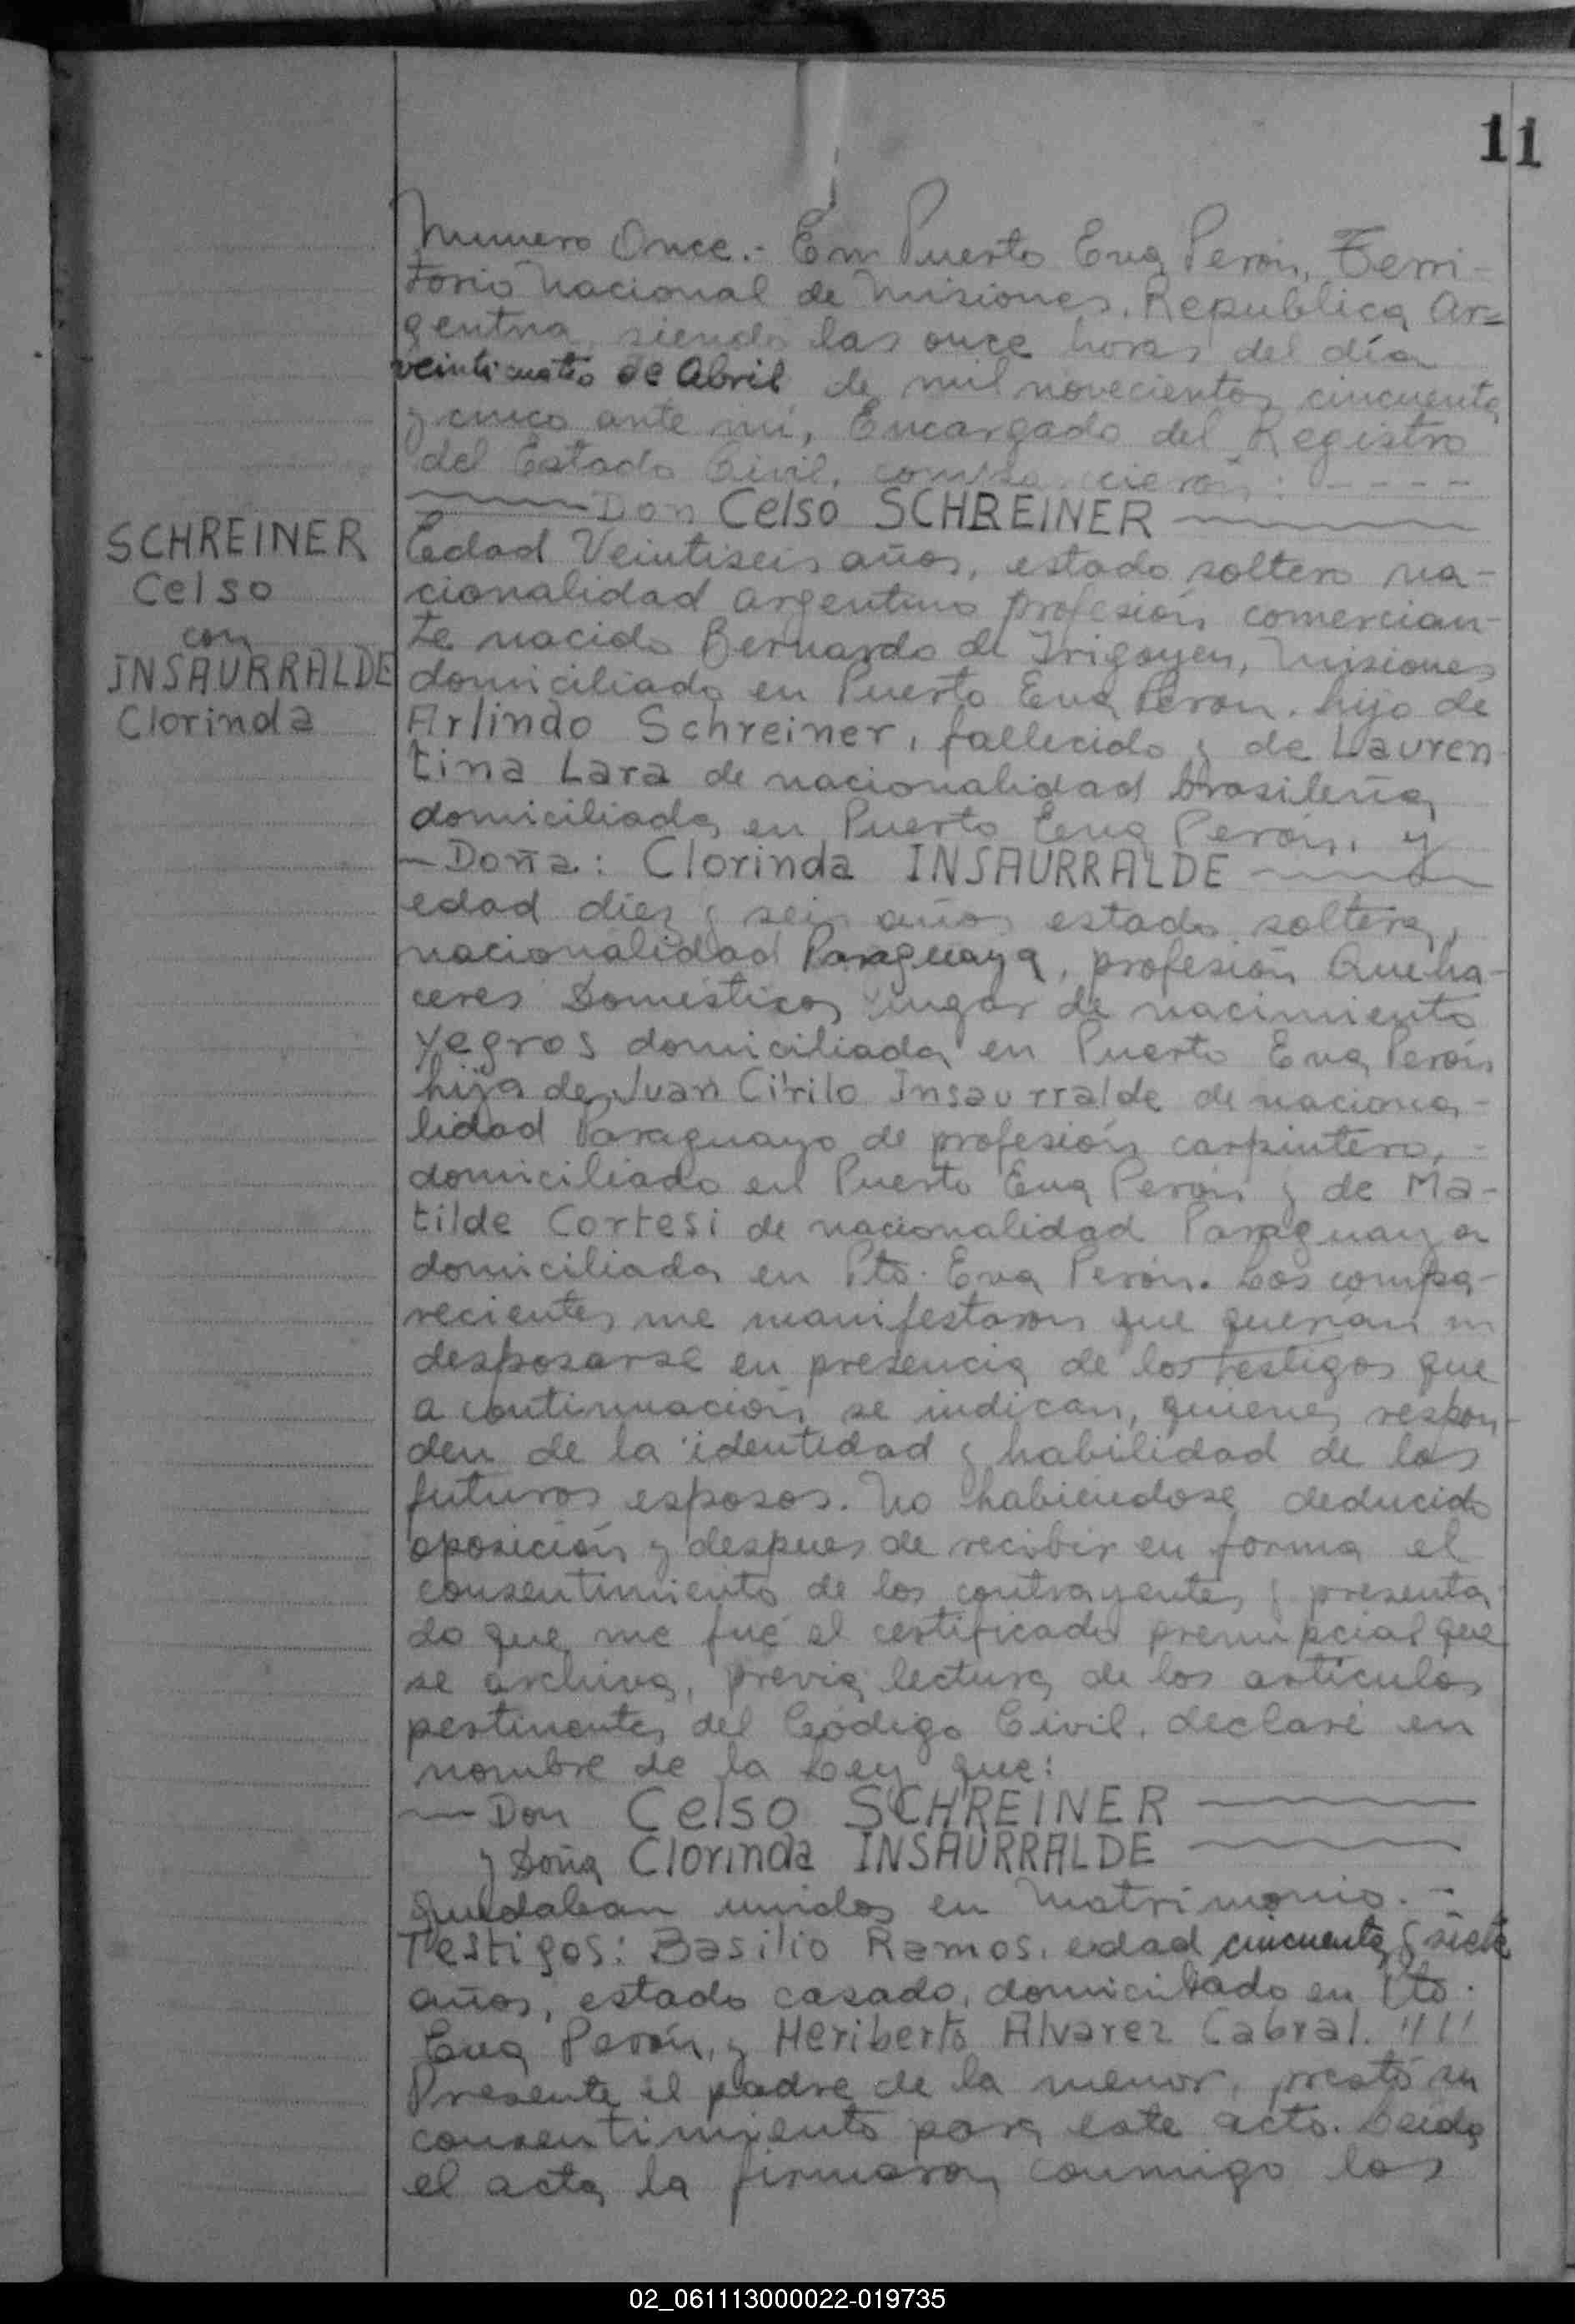 11
Numero Once.- En Puerto Eva Perón, Terri-
torio Nacional de Misiones, Republica Ar=
gentina, siendo las once horas del día
veinticuatro de Abril de mil novecientos cincuenta
y cinco ante mí, Encargado del Registro
del Estado Civil, comparecieron: - - - -
Don Celso SCHREINER
SCHREINER
Celso
con
INSAURRALDE
Clorinda
Edad Veintiseis años, estado soltero na-
cionalidad argentino profesión comercian-
te nacido Bernardo de Irigoyen, Misiones
domiciliado en Puerto Eva Perón. hijo de
Arlindo Schreiner, fallecido y de Lauren
tina Lara de nacionalidad brasileña
domiciliada en Puerto Eva Perón, y
- Doña: Clorinda INSAURRALDE
edad diez y seis años estado soltera,
nacionalidad Paraguaya, profesión Queha-
ceres Domésticos lugar de nacimiento
Yegros domiciliada en Puerto Eva Perón
hija de Juan Cirilo Insaurralde de naciona-
lidad Paraguayo de profesión carpintero,-
domiciliado en Puerto Eva Perón y de Ma-
tilde Cortesi de nacionalidad Paraguaya
domiciliada en Pto. Eva Perón. Los compa-
recientes me manifestaron que querían
desposarse en presencia de los testigos que
a continuación se indican, quienes respon-
den de la identidad y habilidad de los
futuros esposos. No habiendose deducido
oposición y despues de recibir en forma el
consentimiento de los contrayentes y presenta
do que me fué el certificado prenupcial que
se archiva, previa lectura de los artículos
pertinentes del Código Civil, declaré en
nombre de la Ley que:
Don Celso SCHREINER
y Doña Clorinda INSAURRALDE
quedaban unidos en Matrimonio.-
Testigos: Basilio Ramos, edad cincuenta y siete
años, estado casado, domiciliado en Pto.
Eva Perón, y Heriberto Alvarez Cabral.
Presente el padre de la menor, prestó su
consentimiento para este acto. Leida
el acta la firmaron conmigo los
02_061113000022-019735